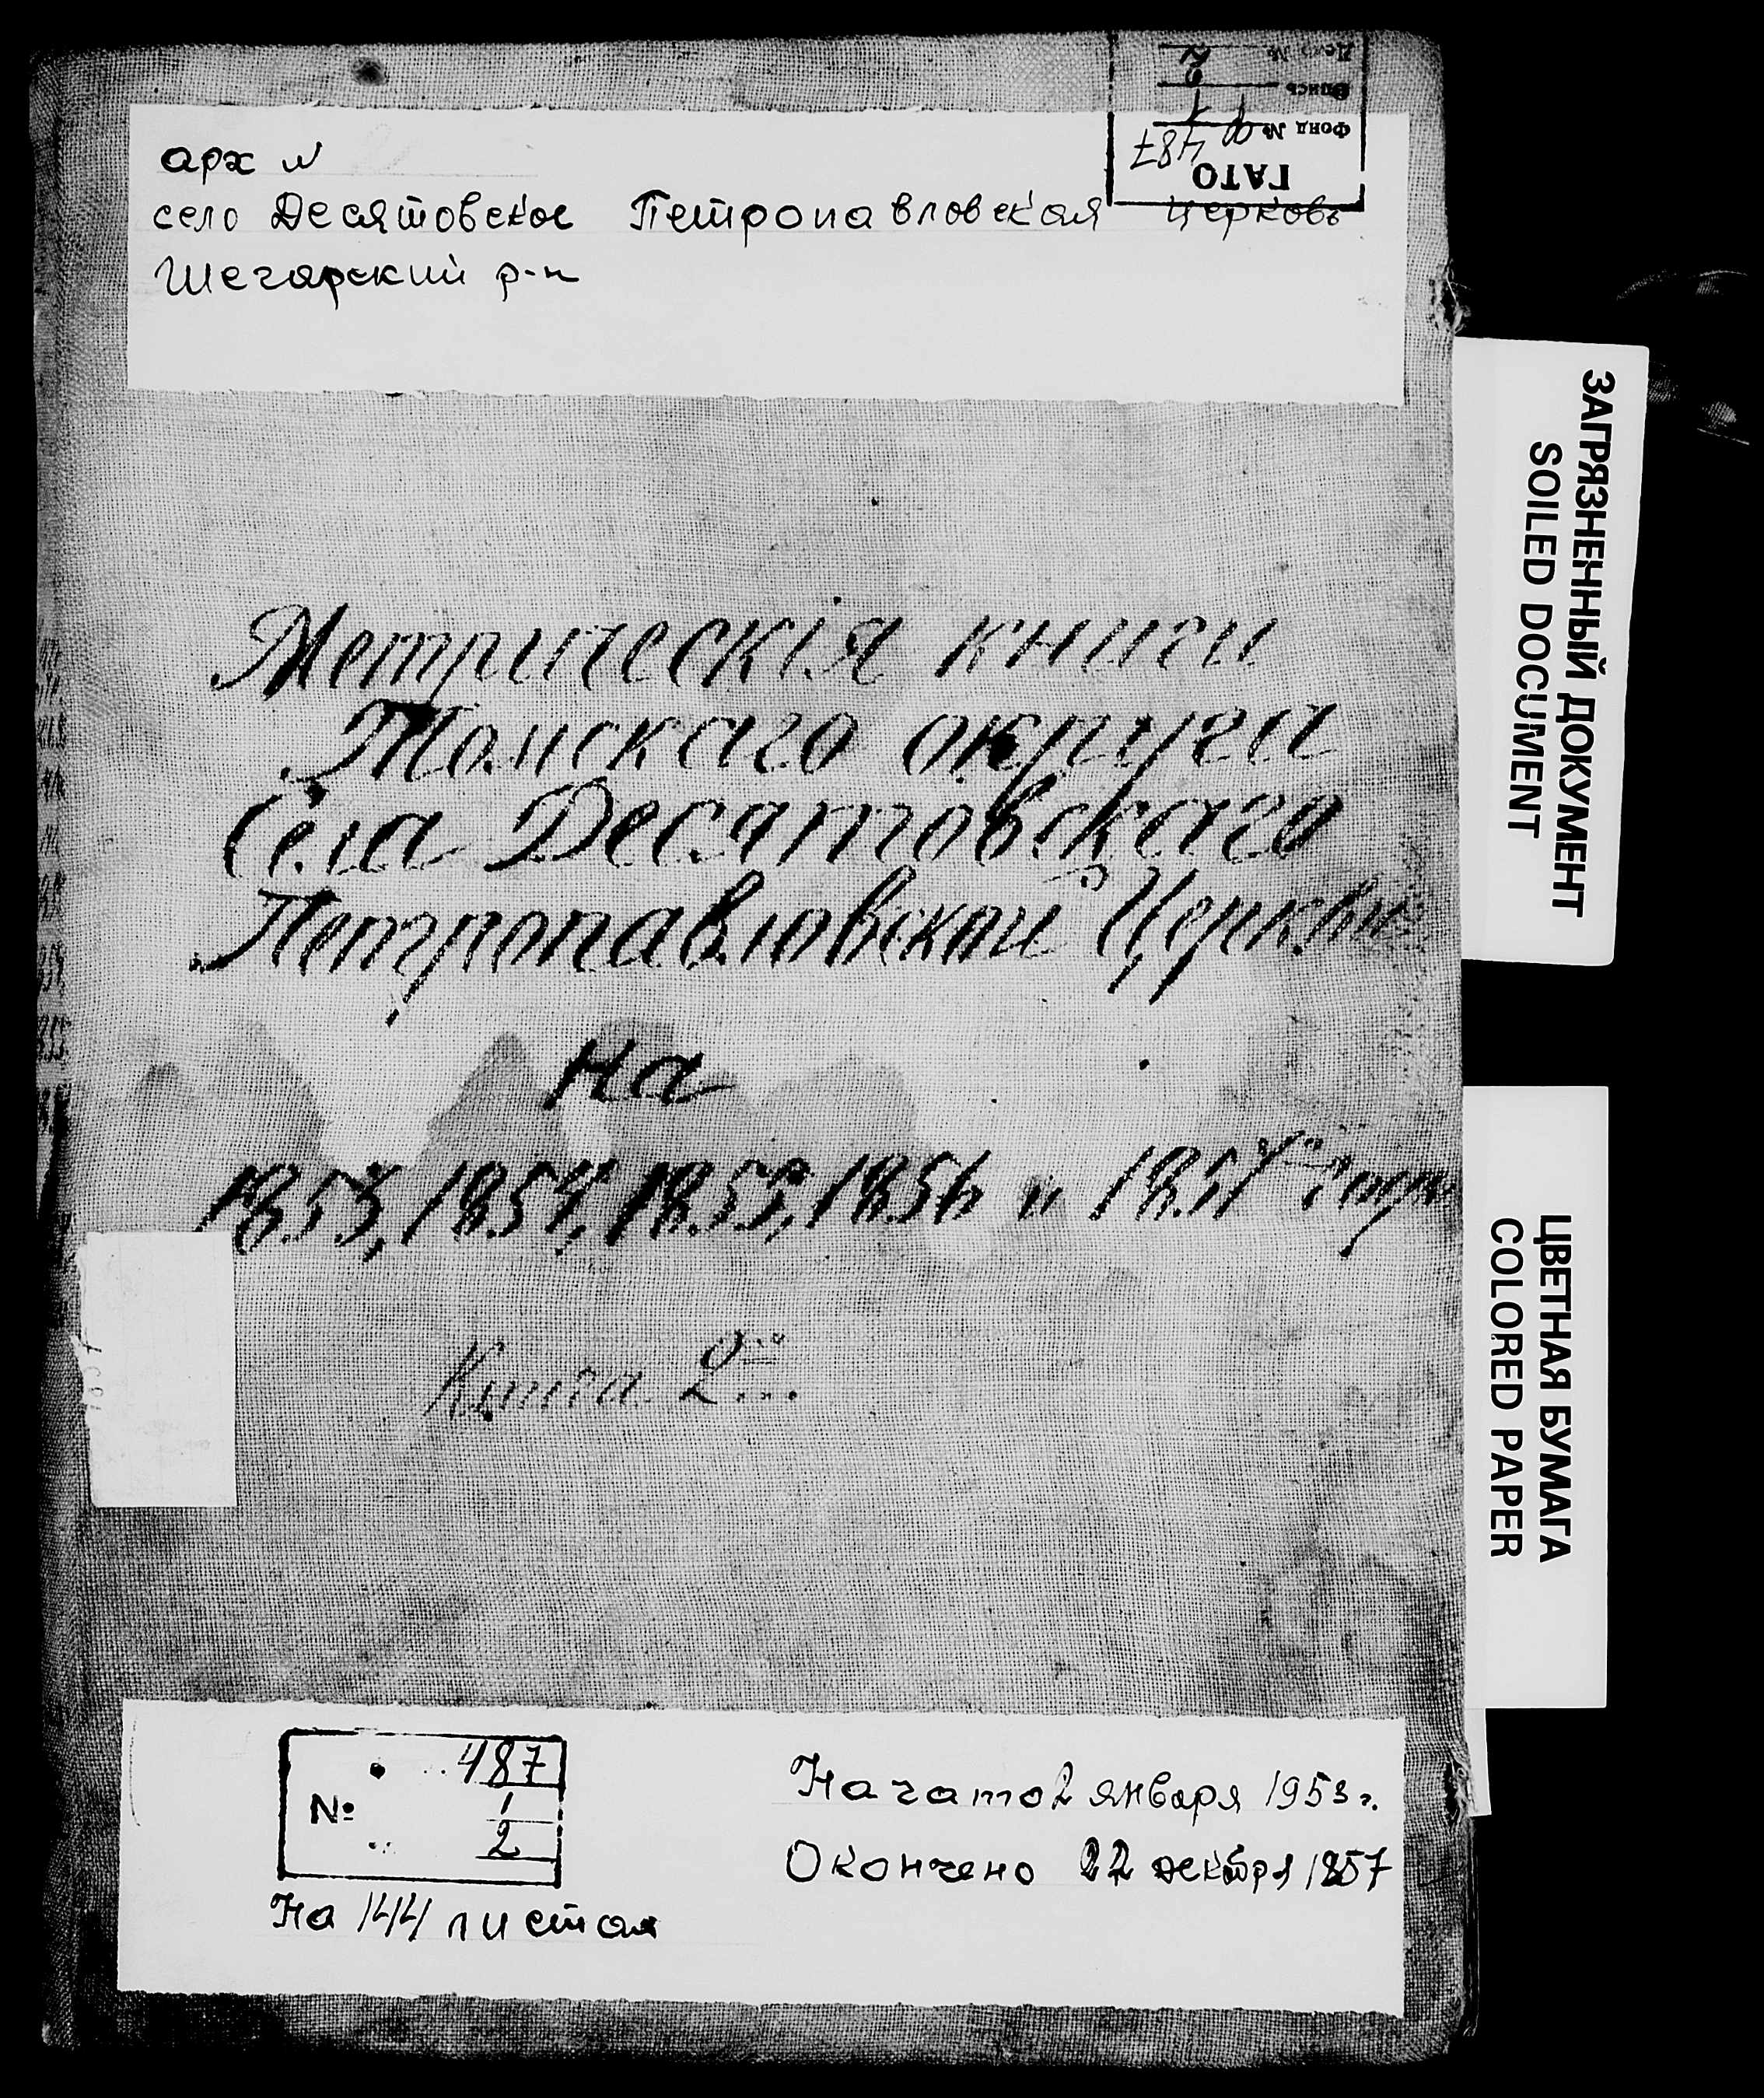 Дело № 2
Опись 1
Фонд № Ф 487
ГАТО
арх №
село Десятовское Петропавловская церковь
Шегарский р-н
Метрическія книги
Томскаго округа
Села Десятовскаго
Петропавловской Церкви
на
1853, 1854, 1855, 1856 и 1857 годы
Книга 2
487
№ 1
2
На 144 листах
Начато 2 января 1953 г.
Окончено 22 декабря 1857
ЗАГРЯЗНЕННЫЙ ДОКУМЕНТ
SOILED DOCUMENT
ЦВЕТНАЯ БУМАГА
COLORED PAPER